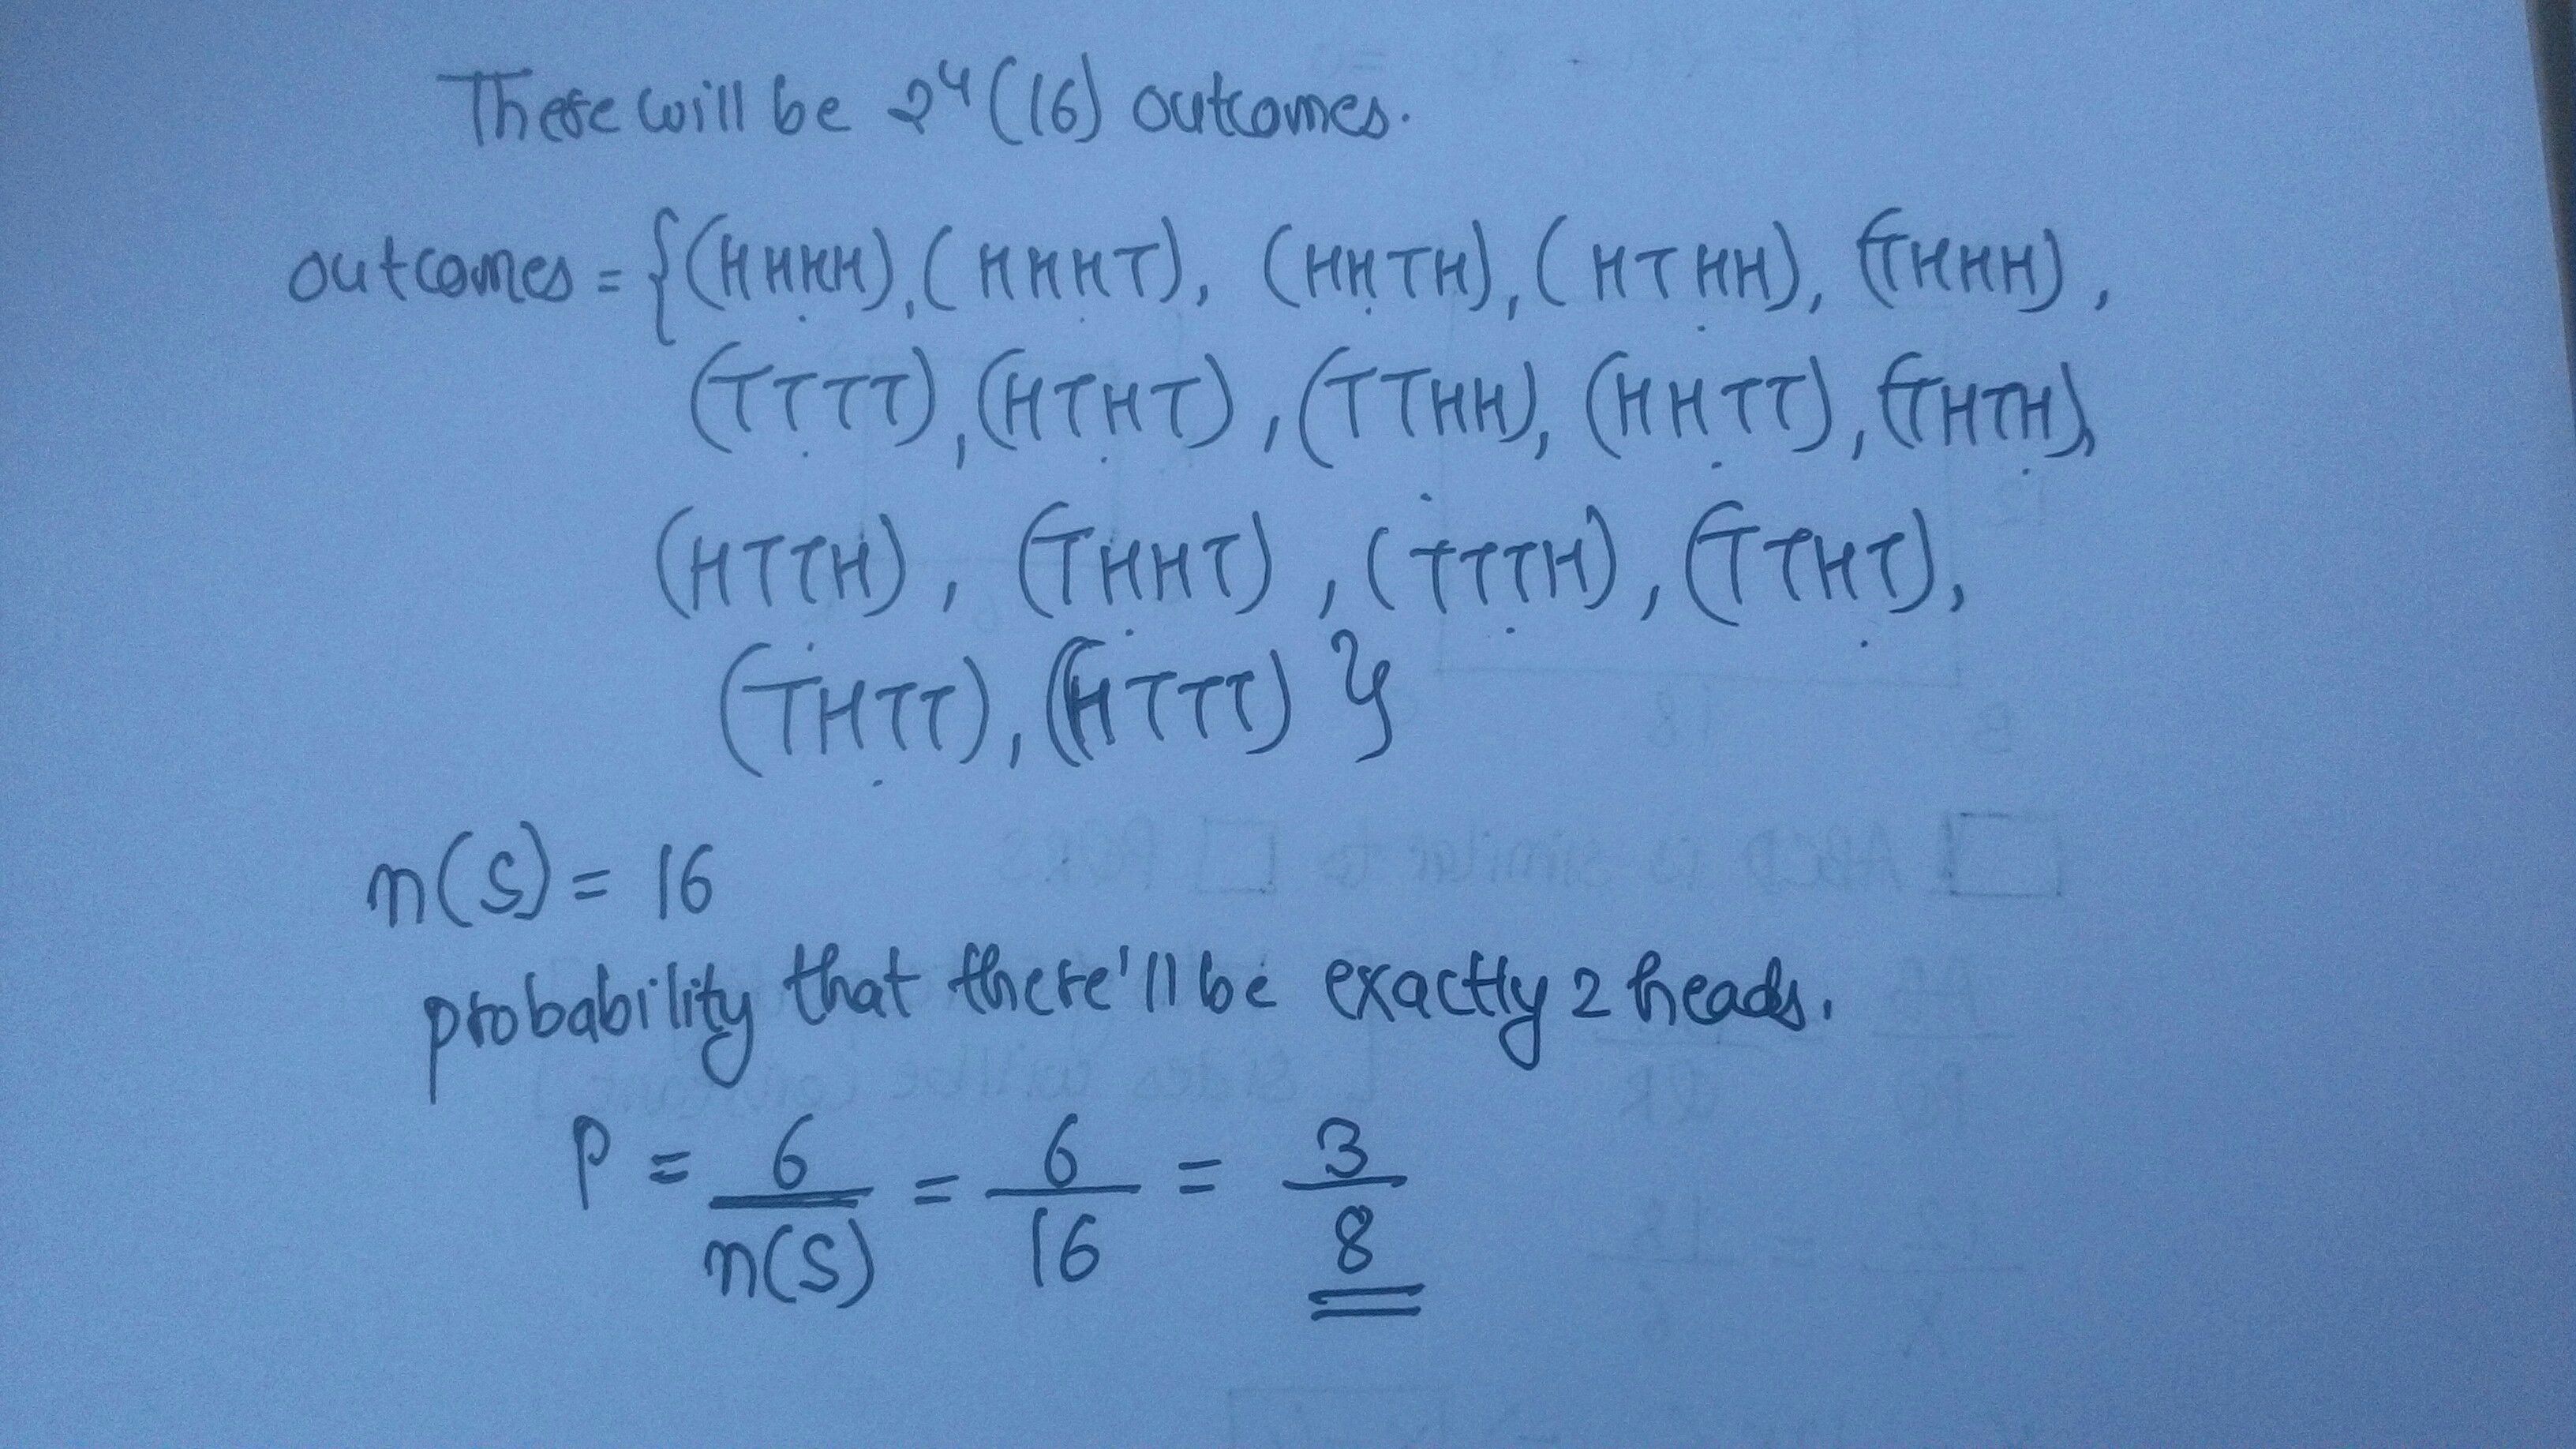 There will be 2⁴ (16) outcomes.
outcomes = {(HHHH), (HHHT), (HHTH), (HTHH), (THHH),
(TTTT), (HTHT), (TTHH), (HHTT), (THTH),
(HTTH), (THHT), (TTTH), (TTHT),
(THTT), (HTTT)}
n(S) = 16
probability that there'll be exactly 2 heads.
P = 6/n(S) = 6/16 = 3/8